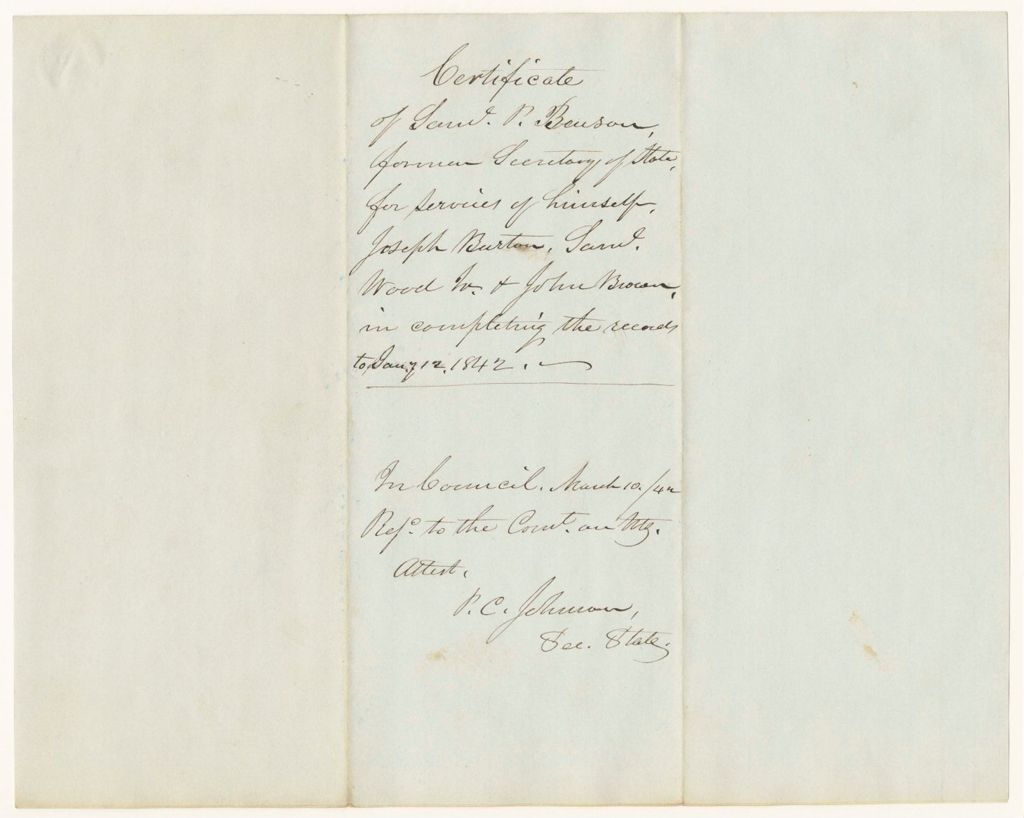 Certificate
of Saml. P. Benson,
former Secretary of State,
for services of himself,
Joseph Burton, Saml.
Wood Jr. & John Brown,
in completing the records
to Jany 12, 1842.
In Council. March 10./42
Refd. to the Comt. on
Attest,
P. C. Johnson,
Sec. State.